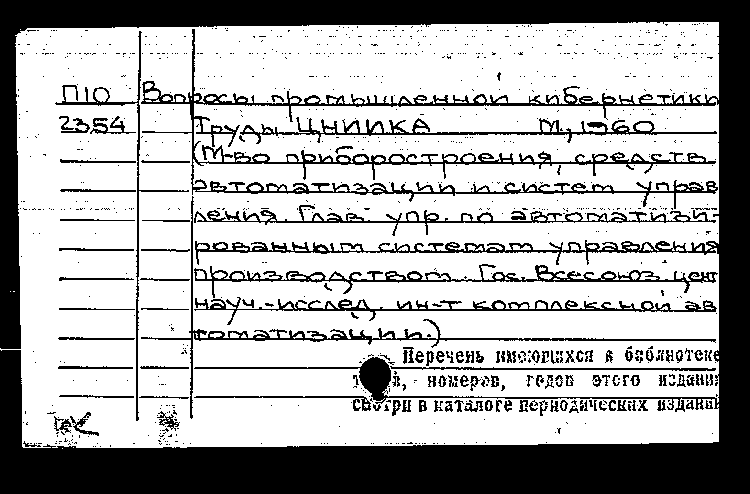 П10 Вопросы промышленной кибернетики
2354 Труды ЦНИИКА М, 1960
(М-во приборостроения, средств
автоматизации и систем управ
ления. Глав. упр. по автоматизи-
рованным системам управления
производством. Гос. Всесоюз. цент
науч.-исслед. ин-т комплексной ав
томатизации.)
Перечень имеющихся в библиотеке
номеров, годов этого издани
смотри в каталоге периодических издани